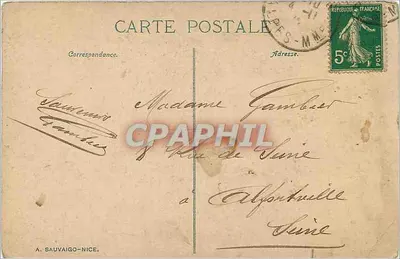 CARTE POSTALE
Correspondance.
Adresse.
REPUBLIQUE FRANÇAISE
5c
POSTES
PES-M
Souvenir
Gambier
Madame Gambier
CPAPHIL
8 Rue de Seine
à Alfortville
Seine
A. SAUVAIGO-NICE.